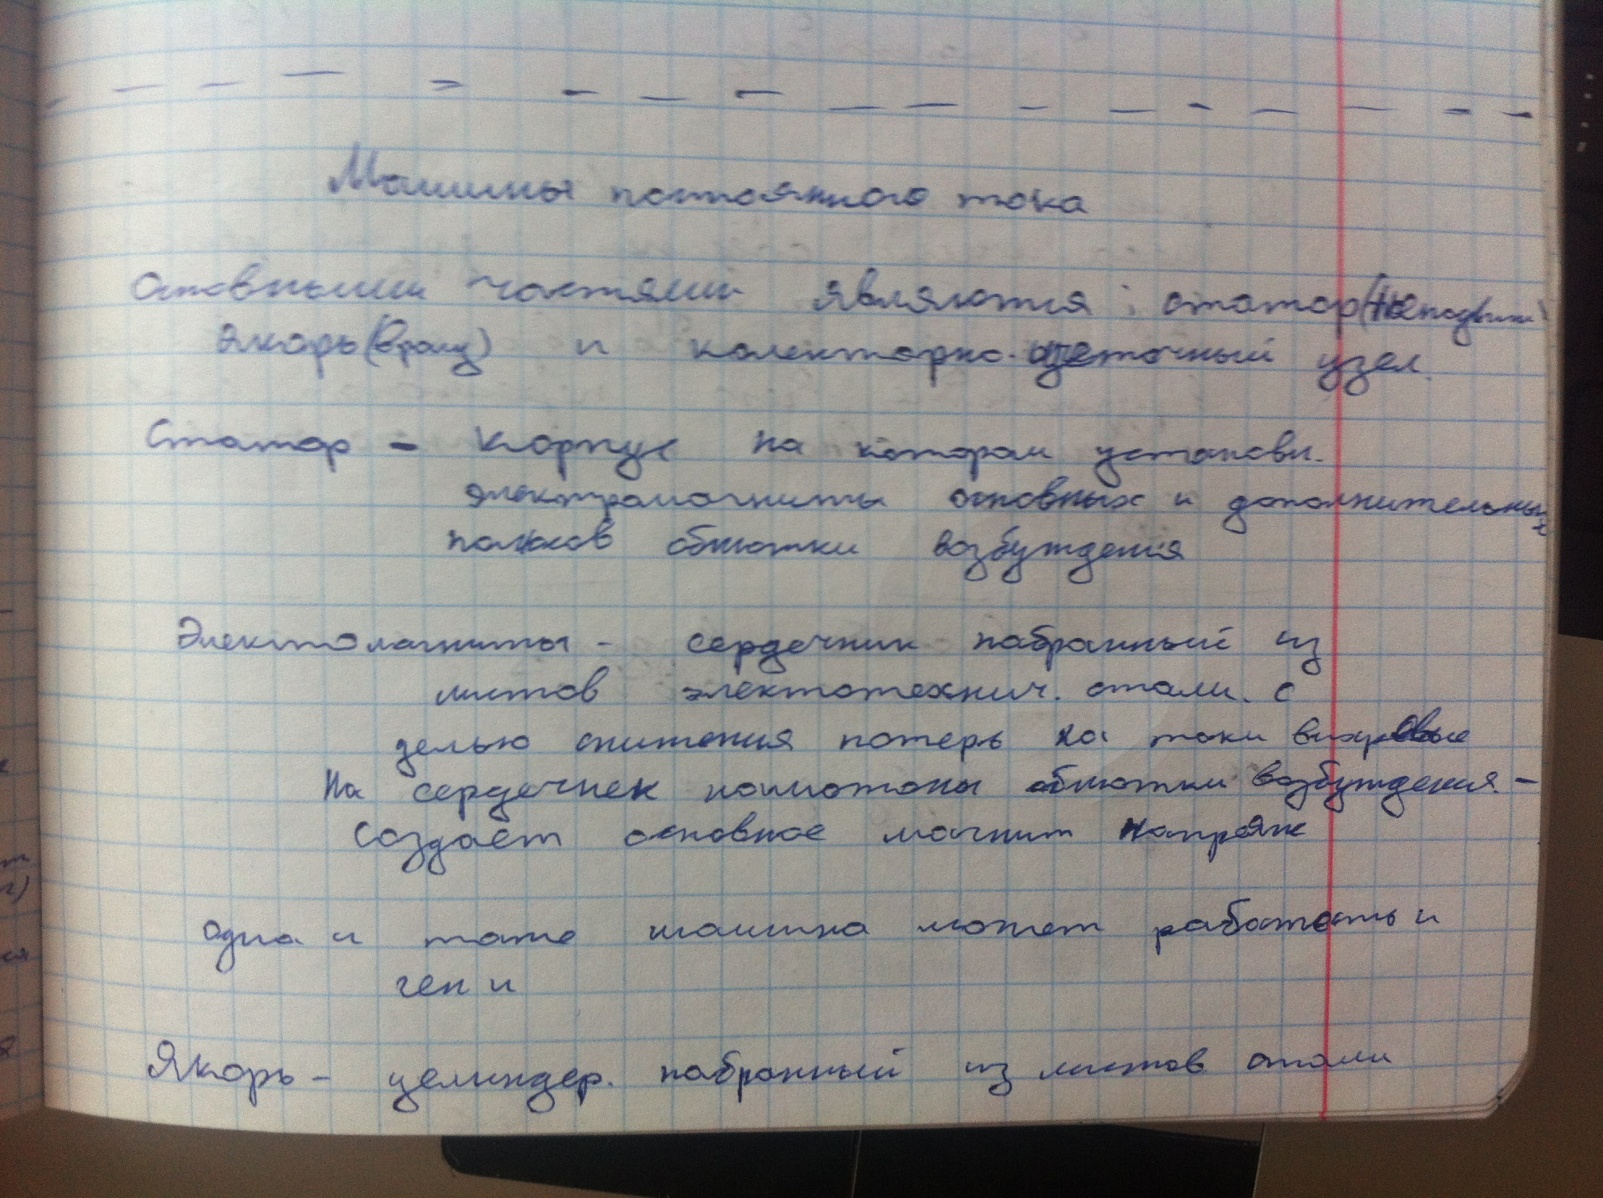 Машины постоянного тока
Основными частями являются: статор(неподвиж)
якорь(вращ) и колекторно-щеточный узел.
Статор - корпус на котором установл.
электромагниты основных и дополнительных
полюсов обмотки возбуждения
Электомагниты - сердечник набранный из
листов электотехнич. стали. с
целью снижения потерь на токи вихревые
На сердечнек намотаны обмотки возбуждения. -
создает основное магнит напряж
одна и таже машина может работать и
ген и
Якорь - целиндер. набранный из листов стали